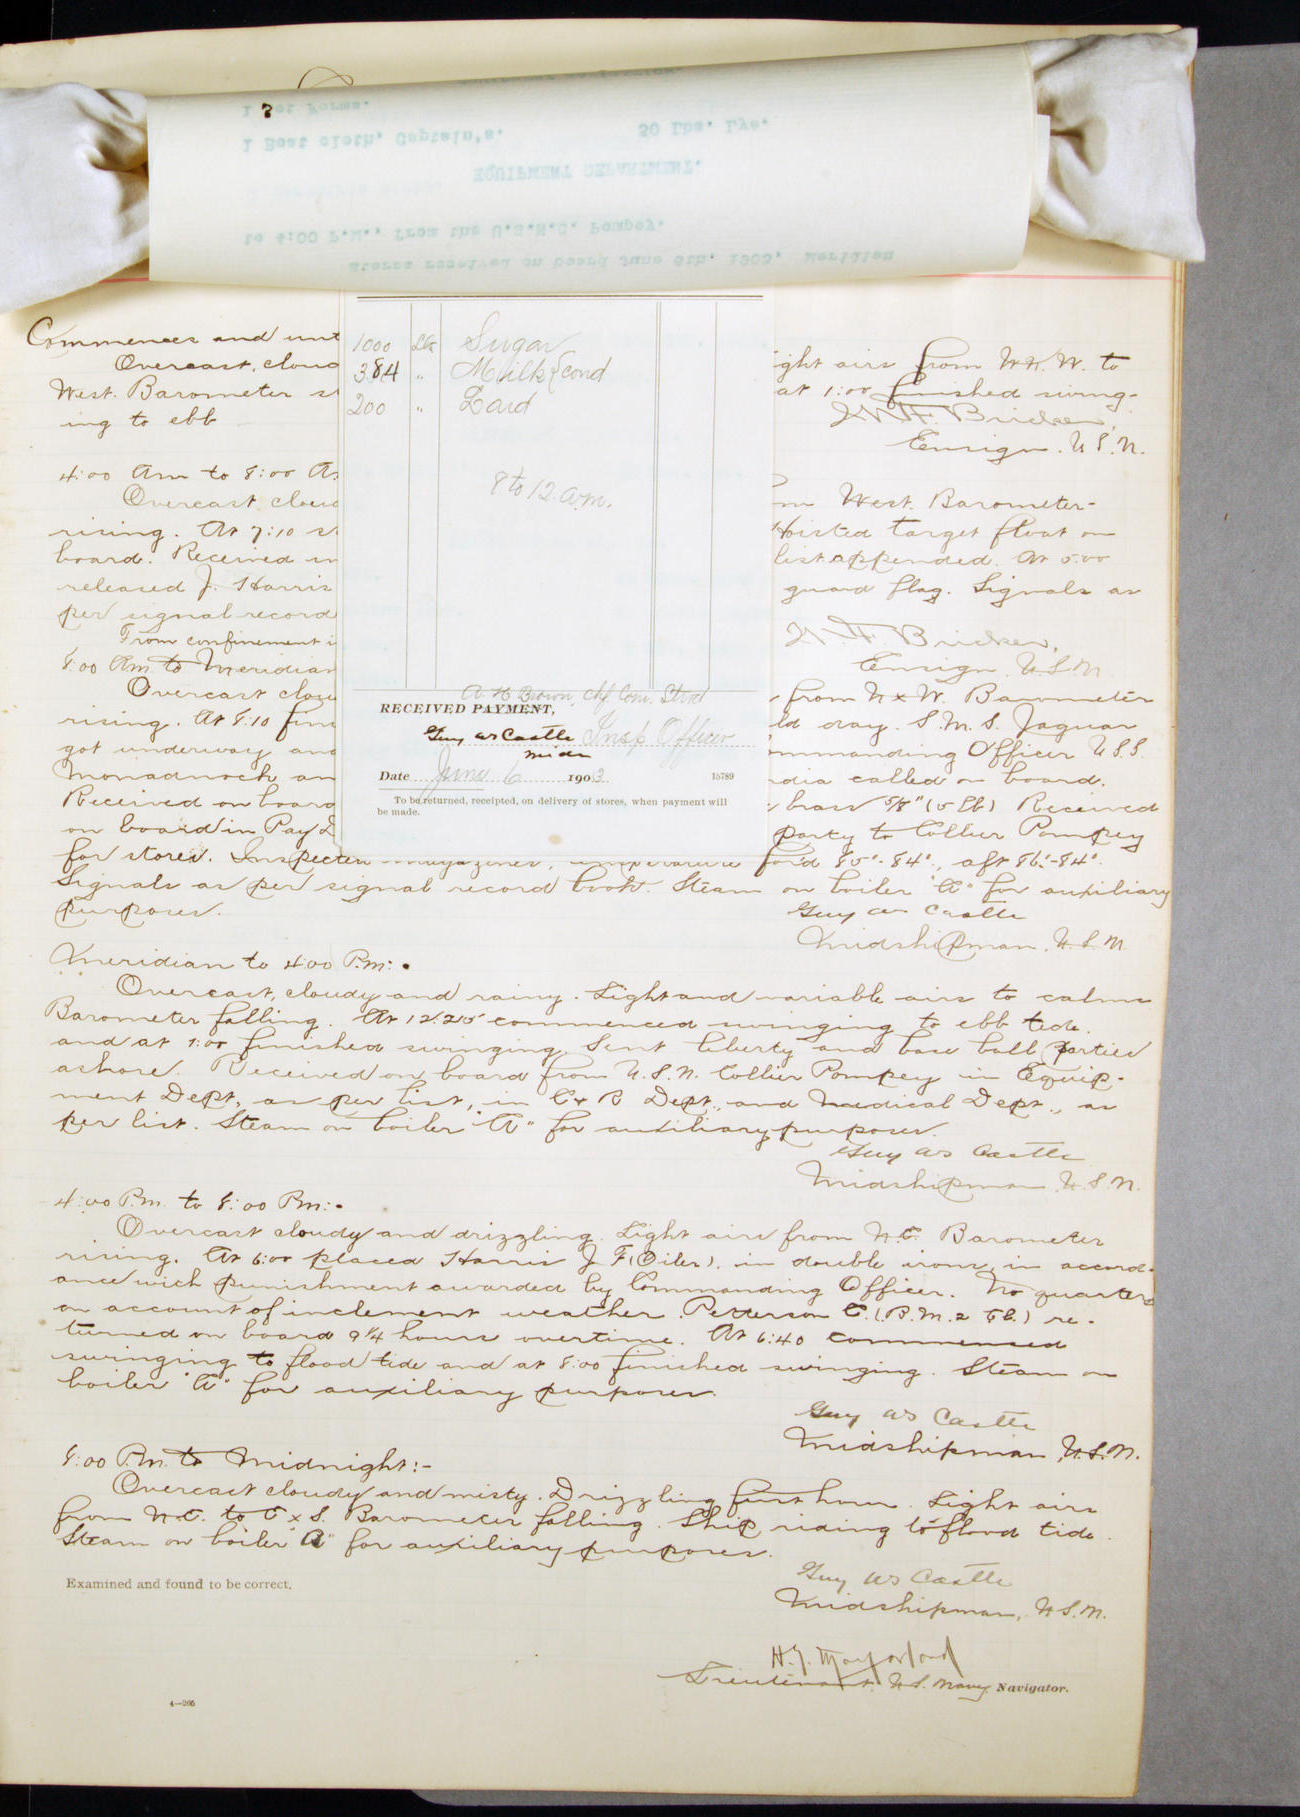 1 Set Forms.
1 Boat cloth, Captain's. 50 Lbs. Lye.
EQUIPMENT DEPARTMENT.
to 4:00 P.M., from the U.S.N.C. Pompey.
Stores received on board June 6th, 1903, Meridian
1000 Lbs Sugar
384 " Milk cond
200 " Lard
8 to 12 a.m.
A. H. Brown, Chf. Com. Stwd
RECEIVED PAYMENT,
Guy W S Castle Insp Officer
Midn
Date June 6 1903 15789
To be returned, receipted, on delivery of stores, when payment will
be made.
Commences and unt
Overcast, cloud ight airs from W.N.W. to
West. Barometer st at 1:00 finished swing-
ing to ebb
Bricker,
Ensign. U.S.N.
4:00 Am to 8:00 A
Overcast cloud m West. Barometer-
rising. At 7:10 st Hoisted target float on
board. Received in list appended. At 5:00
released J. Harris guard flag. Signals as
per signal record
From confinement i Bricker,
Ensign U.S.N.
8:00 Am to Meridian
Overcast clou from N x W. Barometer
rising. At 8:10 fini ld day. S.M.S. Jaguar
got underway and ommanding Officer U.S.S.
Monadnock an dia called on board.
Received on board brass 5/8" (5 lb) Received
on board in Pay D party to Collier Pompey
for stores. Inspected magazines, temperature for'd 85°-84°, aft 86°-84°.
Signals as per signal record book. Steam on boiler "A" for auxiliary
purposes.
Guy W S Castle
Midshipman, U.S.N
Meridian to 4:00 P.m:-
Overcast, cloudy and rainy. Light and variable airs to calms
Barometer falling. At 12:25 commenced swinging to ebb tide.
and at 1:00 finished swinging. Sent liberty and base ball parties
ashore. Received on board from U.S.N. Collier Pompey in Equip-
ment Dept., as per list, in C & R Dept., and Medical Dept., as
per list. Steam on boiler "A" for auxiliary purposes.
Guy W S Castle
Midshipman, U.S.N.
4:00 P.m. to 8:00 Pm:-
Overcast cloudy and drizzling. Light airs from N.E. Barometer
rising. At 6:00 placed Harris J. F (Oiler). in double irons, in accord-
ance with punishment awarded by Commanding Officer. No quarters
on account of inclement weather. Petterson C. (B.M. 2 Cl.) re-
turned on board 9 1/4 hours overtime. At 6:40 commenced
swinging to flood tide and at 8:00 finished swinging. Steam on
boiler "A" for auxiliary purposes.
Guy W S Castle
Midshipman, U.S.N.
8:00 P.m. to Midnight:-
Overcast cloudy and misty. Drizzling first hour. Light airs
from N.E. to E x S. Barometer falling. Ship riding to flood tide.
Steam on boiler "A" for auxiliary purposes.
Guy W S Castle
Midshipman, U.S.N.
Examined and found to be correct.
Lieutenant U.S. Navy, Navigator.
4—205